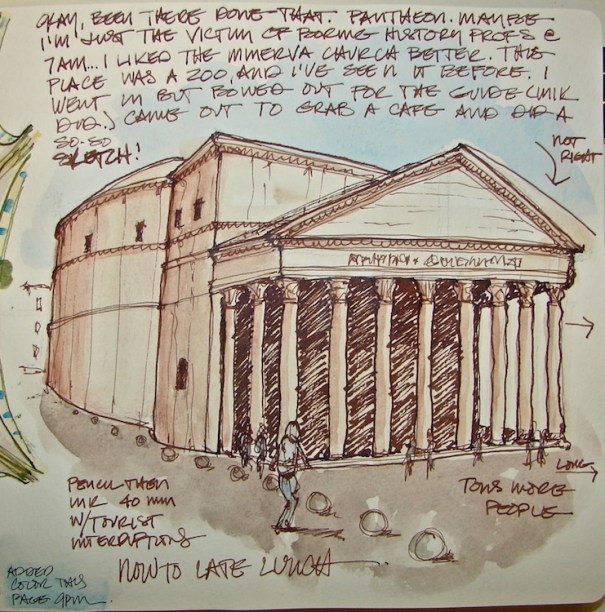 OKAY, BEEN THERE DONE THAT. PANTHEON. MAYBE
I'M JUST THE VICTIM OF BORING HISTORY PROFS @
7AM... I LIKED THE MINERVA CHURCH BETTER. THIS
PLACE WAS A ZOO, AND I'VE SEEN IT BEFORE. I
WENT IN BUT BOWED OUT FOR THE GUIDE (MIK
DID.) CAME OUT TO GRAB A CAFE AND DID A
SO-SO
SKETCH!
NOT
RIGHT
LONG
TONS MORE
PEOPLE
PENCIL THEN
INK 40 MIN
W/TOURIST
INTERRUPTIONS
NOW TO LATE LUNCH
ADDED
COLOR THIS
PAGE 9PM